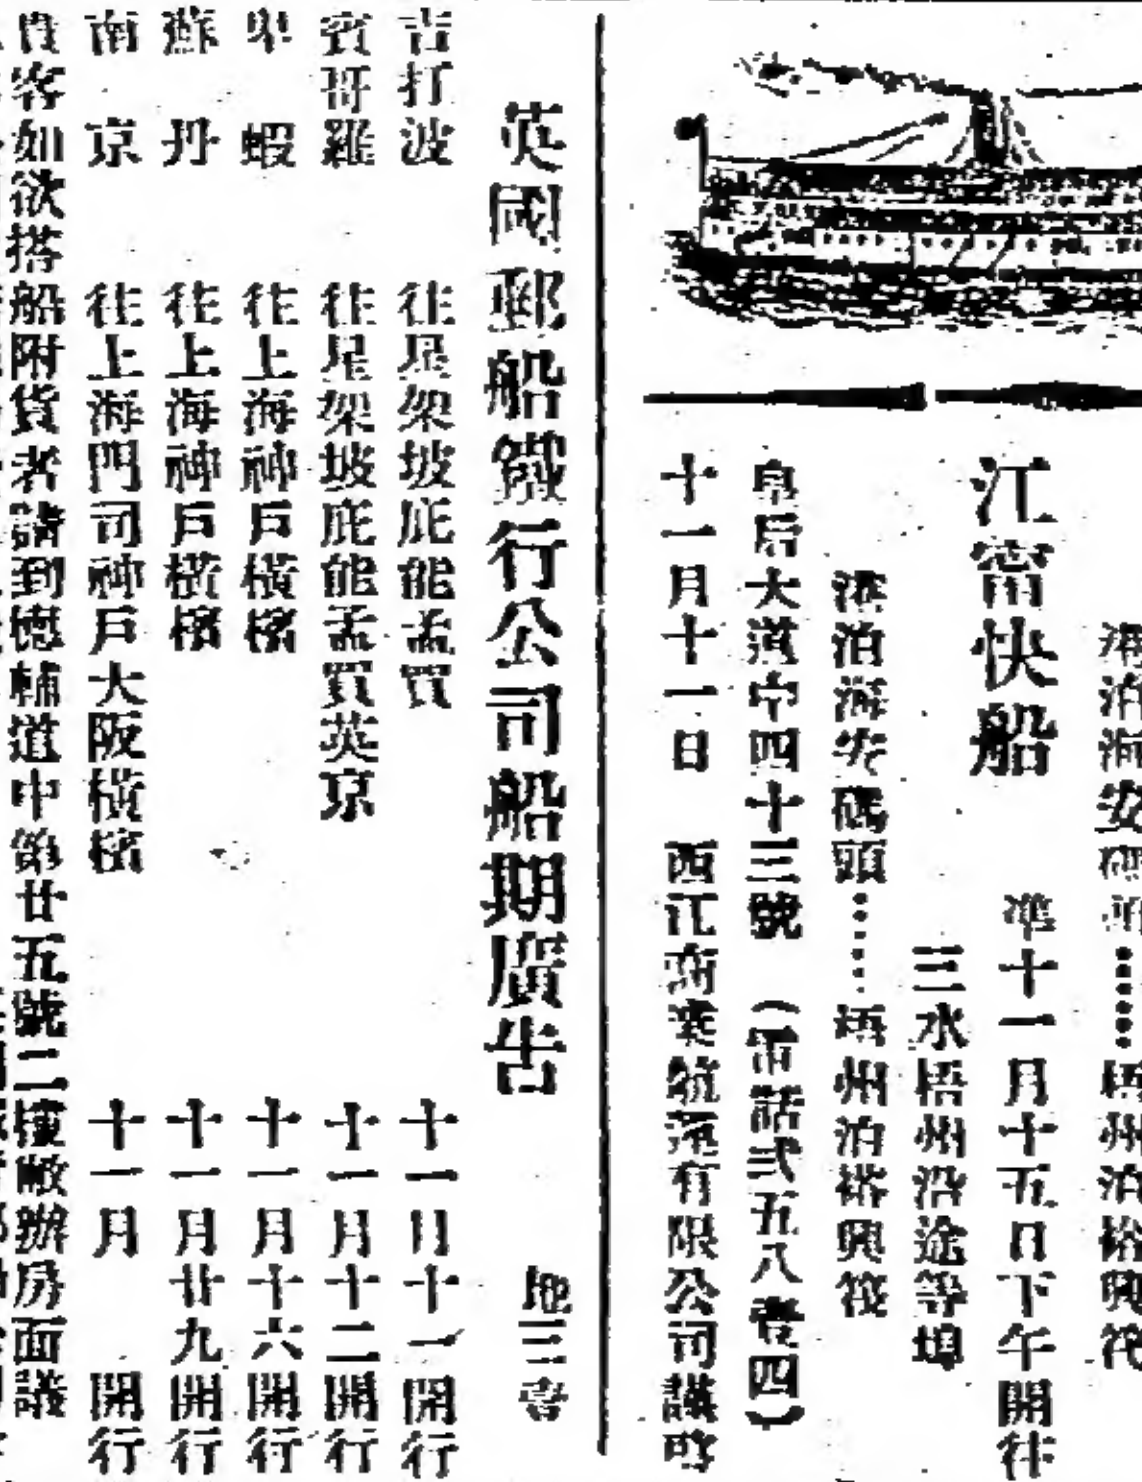 港泊海安碼頭……梧州泊裕興筏
江甯快船
準十一月十五日下午開往
三水梧州沿途等埠
港泊海安碼頭……梧州泊裕興筏
皇后大道中四十三號 (電話弍五八壹四)
十一月十一日 西江商業航運有限公司謹啓
英國郵船鐵行公司船期廣告
地三壹
吉打波 往星架坡庇能孟買 十一月十一開行
賓哥羅 往星架坡庇能孟買英京 十一月十二開行
卑蝦 往上海神戶橫檳 十一月十六開行
蘇丹 往上海神戶橫檳 十一月廿九開行
南京 往上海門司神戶大阪橫檳 十一月 開行
貴客如欲搭船附貨者請到德輔道中第廿五號二樓敝辦房面議